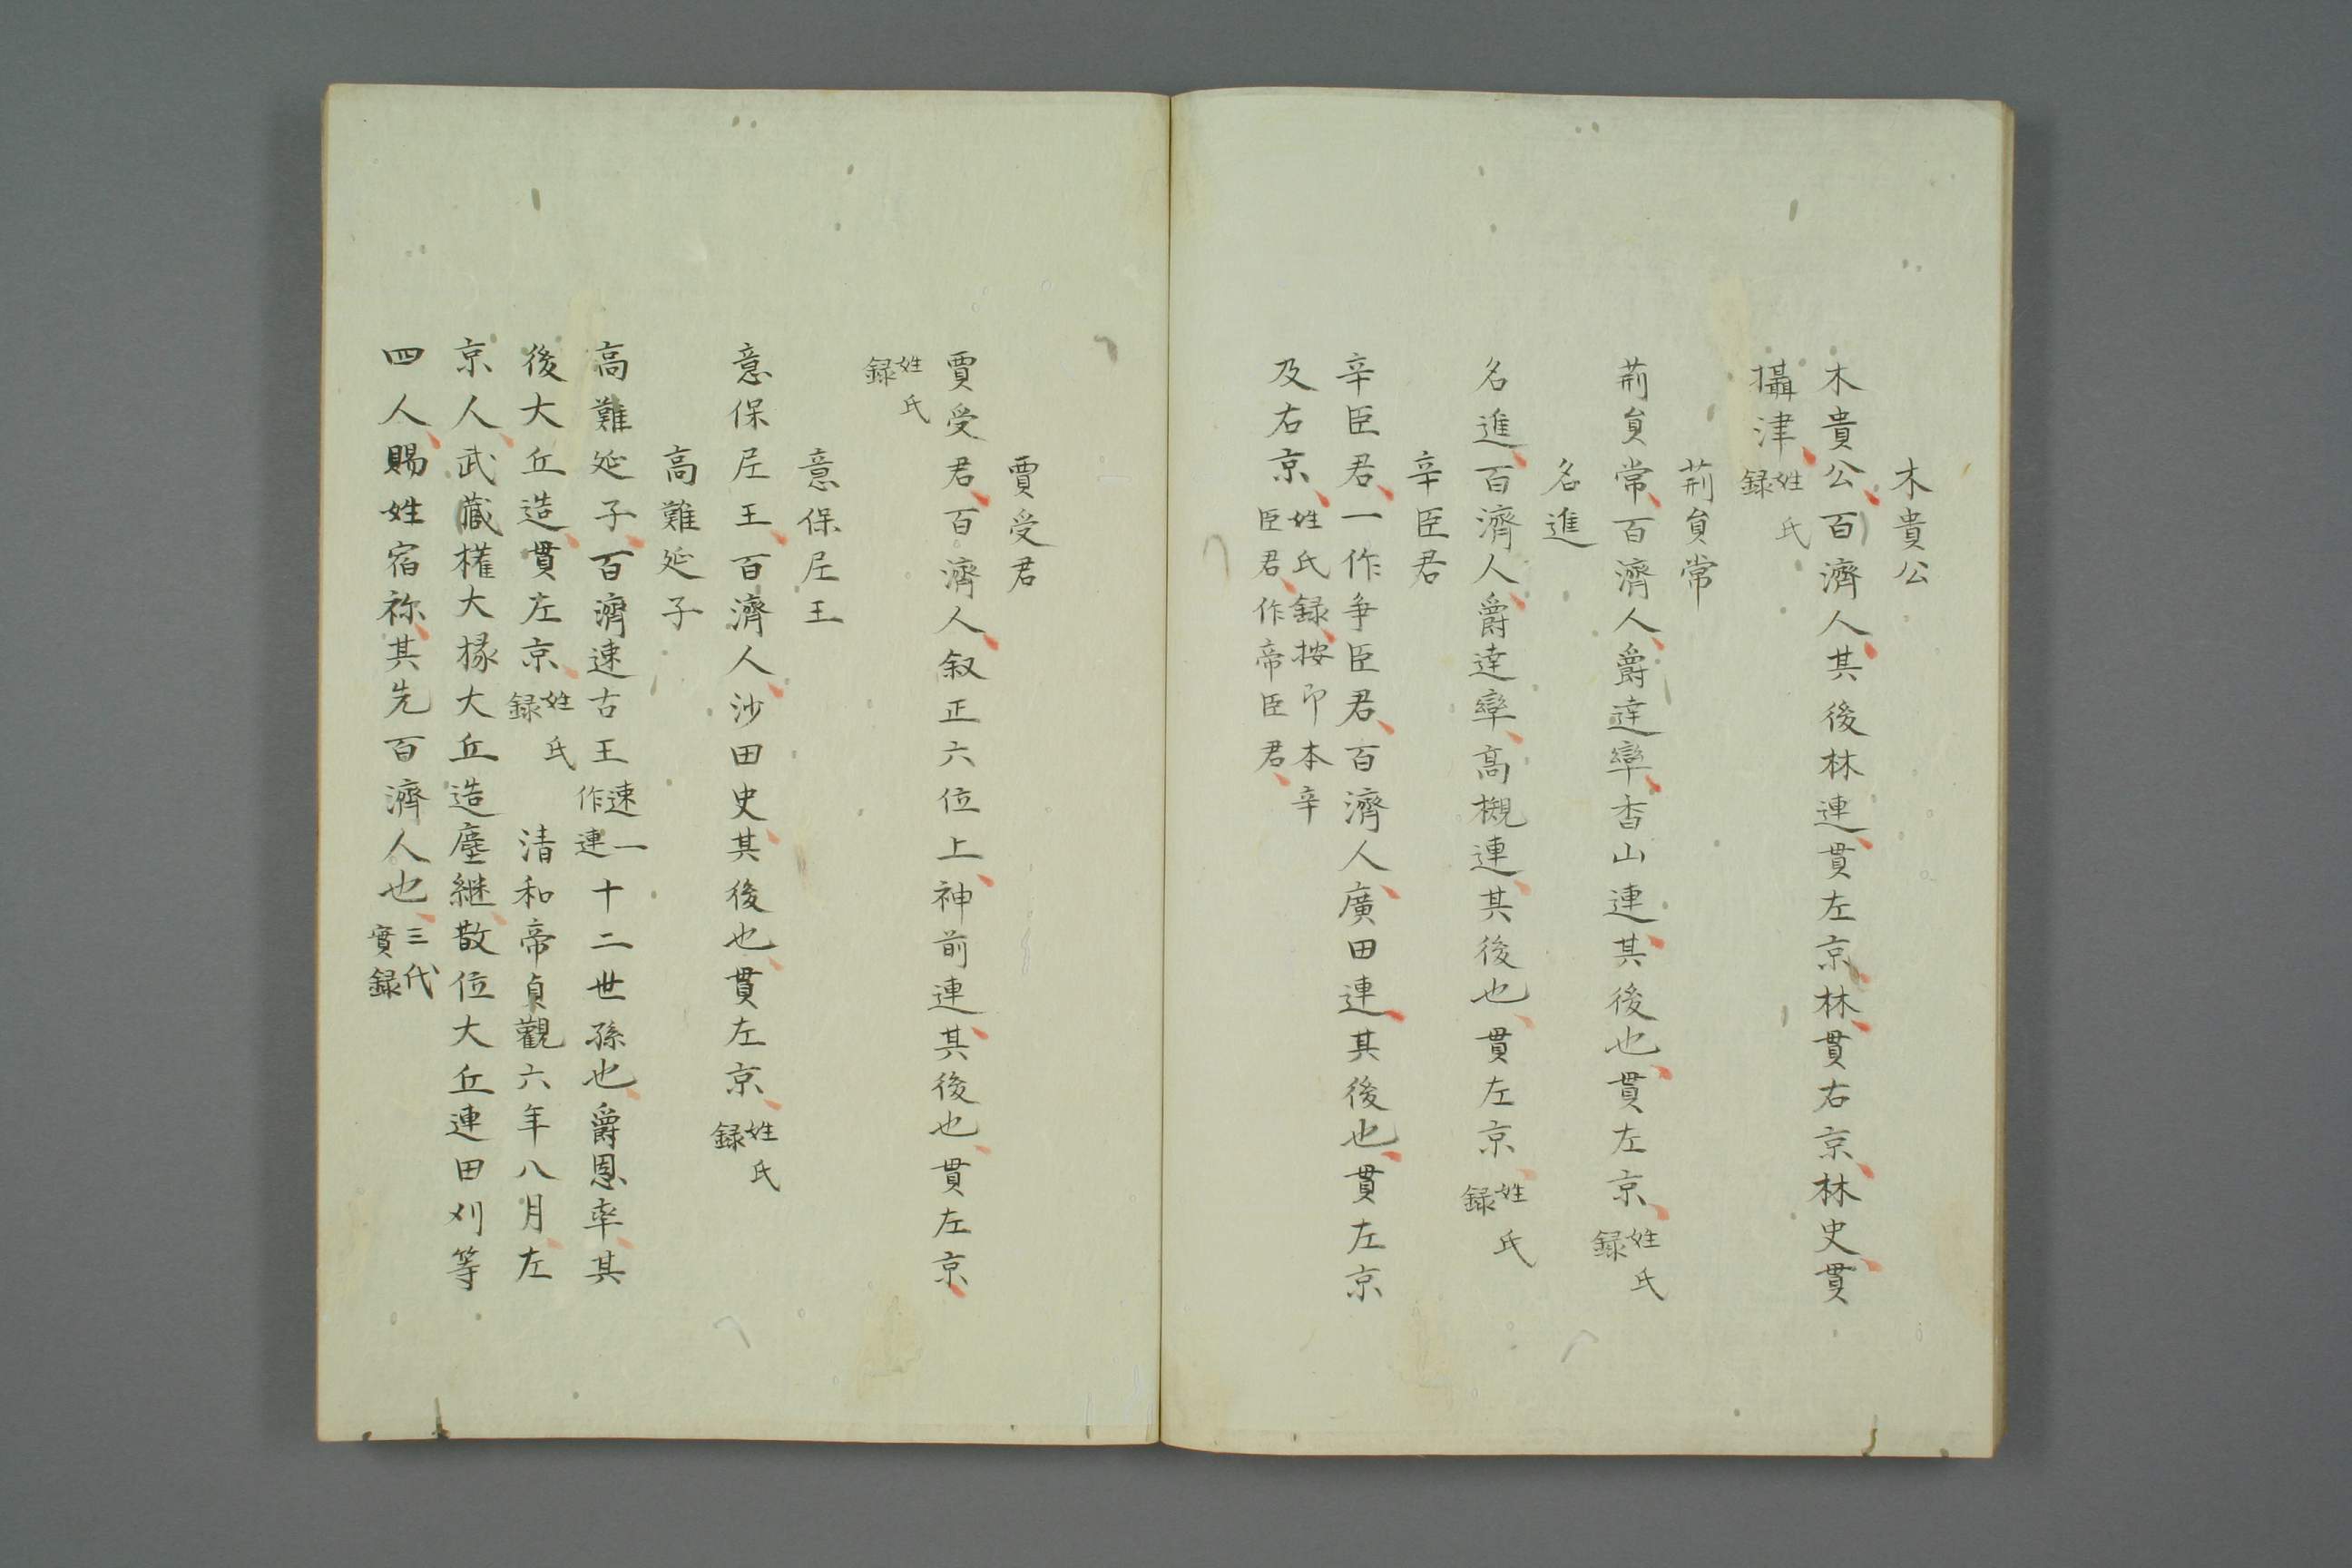 木貴公
木貴公百濟人其後林連貫左京林貫右京林史貫
攝津姓氏録
荊員常
荊員常百濟人爵達率香山連其後也貫左京姓氏録
名進
名進百濟人爵達率高槻連其後也貫左京姓氏録
辛臣君
辛臣君一作爭臣君百濟人廣田連其後也貫左京
及右京姓氏録按印本辛臣君作帝臣君
賈受君
賈受君百濟人叙正六位上神前連其後也貫左京
姓氏録
意保尼王
意保尼王百濟人沙田史其後也貫左京姓氏録
高難延子
高難延子百濟速古王速一作連十二世孫也爵恩率其
後大丘造貫左京姓氏録 清和帝貞觀六年八月左
京人武藏權大掾大丘造塵継散位大丘連田刈等
四人賜姓宿祢其先百濟人也三代實録